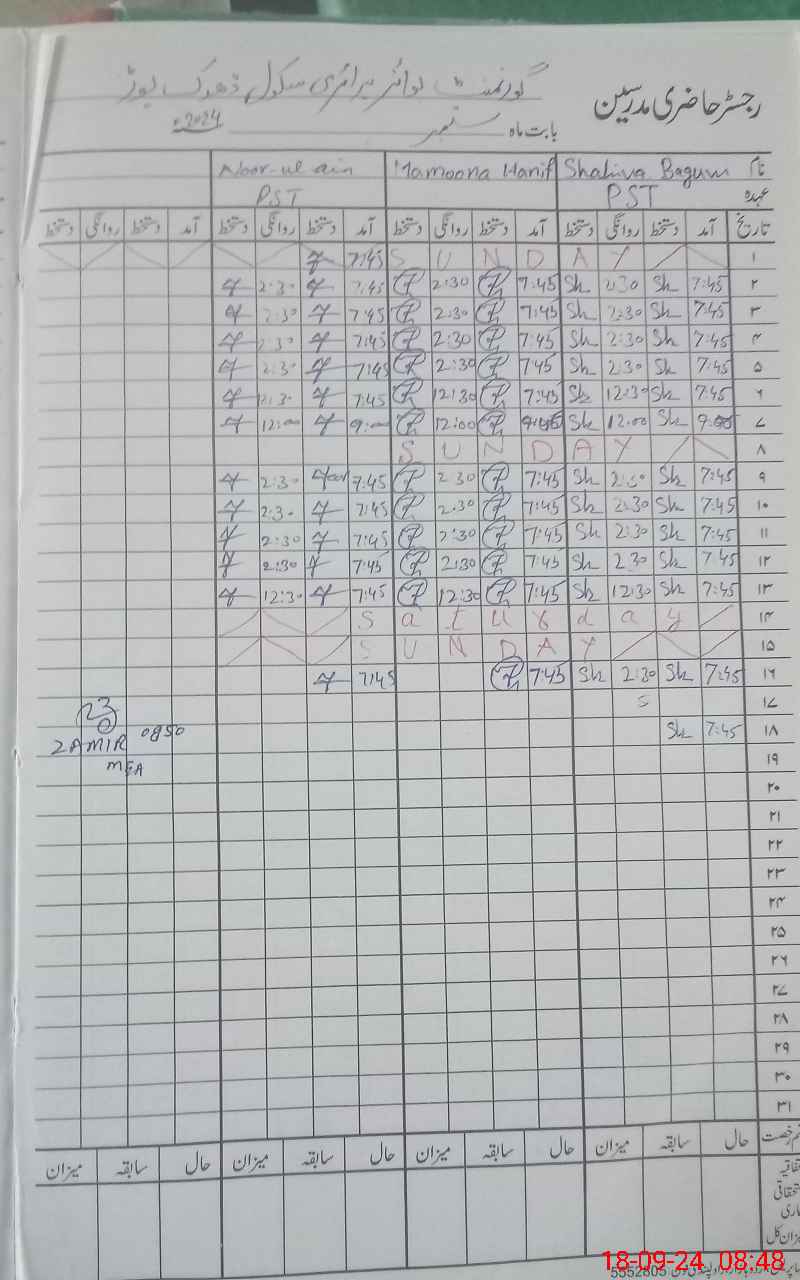 رجسٹر حاضری مدرسین
گورنمنٹ بوائز پرائمری سکول ڈھوک
بابت ماہ ستمبر 2024ء
نام Shahina Bagum Mamoona Hanif Noor-ul-ain
عہدہ PST PST
تاریخ آمد دستخط روانگی دستخط آمد دستخط روانگی دستخط آمد دستخط روانگی دستخط آمد دستخط روانگی دستخط
۱ S U N D A Y 7:45
۲ 7:45 Sh 2:30 Sh 7:45 2:30 7:45 2:30
۳ 7:45 Sh 2:30 Sh 7:45 2:30 7:45 2:30
۴ 7:45 Sh 2:30 Sh 7:45 2:30 7:45 2:30
۵ 7:45 Sh 2:30 Sh 7:45 2:30 7:45 2:30
۶ 7:45 Sh 12:30 Sh 7:45 12:30 7:45
۷ 9:00 Sh 12:00 Sh 12:00 9:00 12:00
۸ S U N D A Y
۹ 7:45 Sh 2:30 Sh 7:45 2:30 7:45 Noor 2:30
۱۰ 7:45 Sh 2:30 Sh 7:45 2:30 7:45 2:30
۱۱ 7:45 Sh 2:30 Sh 7:45 2:30 7:45 2:30
۱۲ 7:45 Sh 2:30 Sh 7:45 2:30 7:45 2:30
۱۳ 7:45 Sh 12:30 Sh 7:45 12:30 7:45 12:30
۱۴ S a t u r d a y
۱۵ S U N D A Y
۱۶ 7:45 Sh 2:30 Sh 7:45 7:45
۱۷ S
۱۸ 7:45 Sh
ZAMIR 0850
۱۹ MEA
۲۰
۲۱
۲۲
۲۳
۲۴
۲۵
۲۶
۲۷
۲۸
۲۹
۳۰
۳۱
حال سابقہ میزان حال سابقہ میزان حال سابقہ میزان حال سابقہ میزان
18-09-24 08:48
5552805